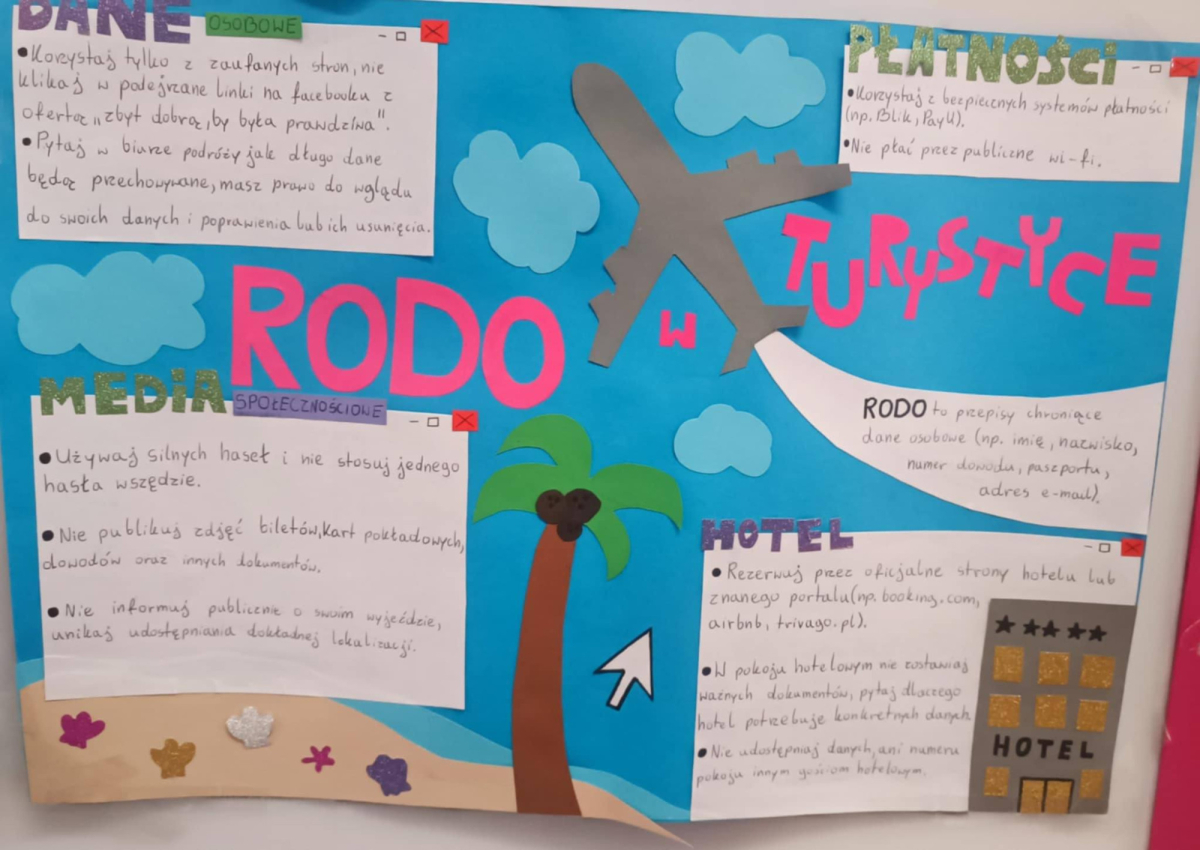 DANE OSOBOWE
•Korzystaj tylko z zaufanych stron, nie
klikaj w podejrzane linki na facebooku z
ofertą „zbyt dobrą, by była prawdziwa".
•Pytaj w biurze podróży jak długo dane
będą przechowywane, masz prawo do wglądu
do swoich danych i poprawienia lub ich usunięcia.
PŁATNOŚCI
•Korzystaj z bezpiecznych systemów płatności
(np. Blik, PayU).
•Nie płać przez publiczne wi-fi.
RODO
W
TURYSTYCE
RODO to przepisy chroniące
dane osobowe (np. imię, nazwisko,
numer dowodu, paszportu,
adres e-mail).
MEDIA SPOŁECZNOŚCIOWE
•Używaj silnych haseł i nie stosuj jednego
hasła wszędzie.
•Nie publikuj zdjęć biletów, kart pokładowych,
dowodów oraz innych dokumentów.
•Nie informuj publicznie o swoim wyjeździe,
unikaj udostępniania dokładnej lokalizacji.
HOTEL
•Rezerwuj przez oficjalne strony hotelu lub
znanego portalu (np. booking.com,
airbnb, trivago.pl).
•W pokoju hotelowym nie zostawiaj
ważnych dokumentów, pytaj dlaczego
hotel potrzebuje konkretnych danych.
•Nie udostępniaj danych, ani numeru
pokoju innym gościom hotelowym.
HOTEL